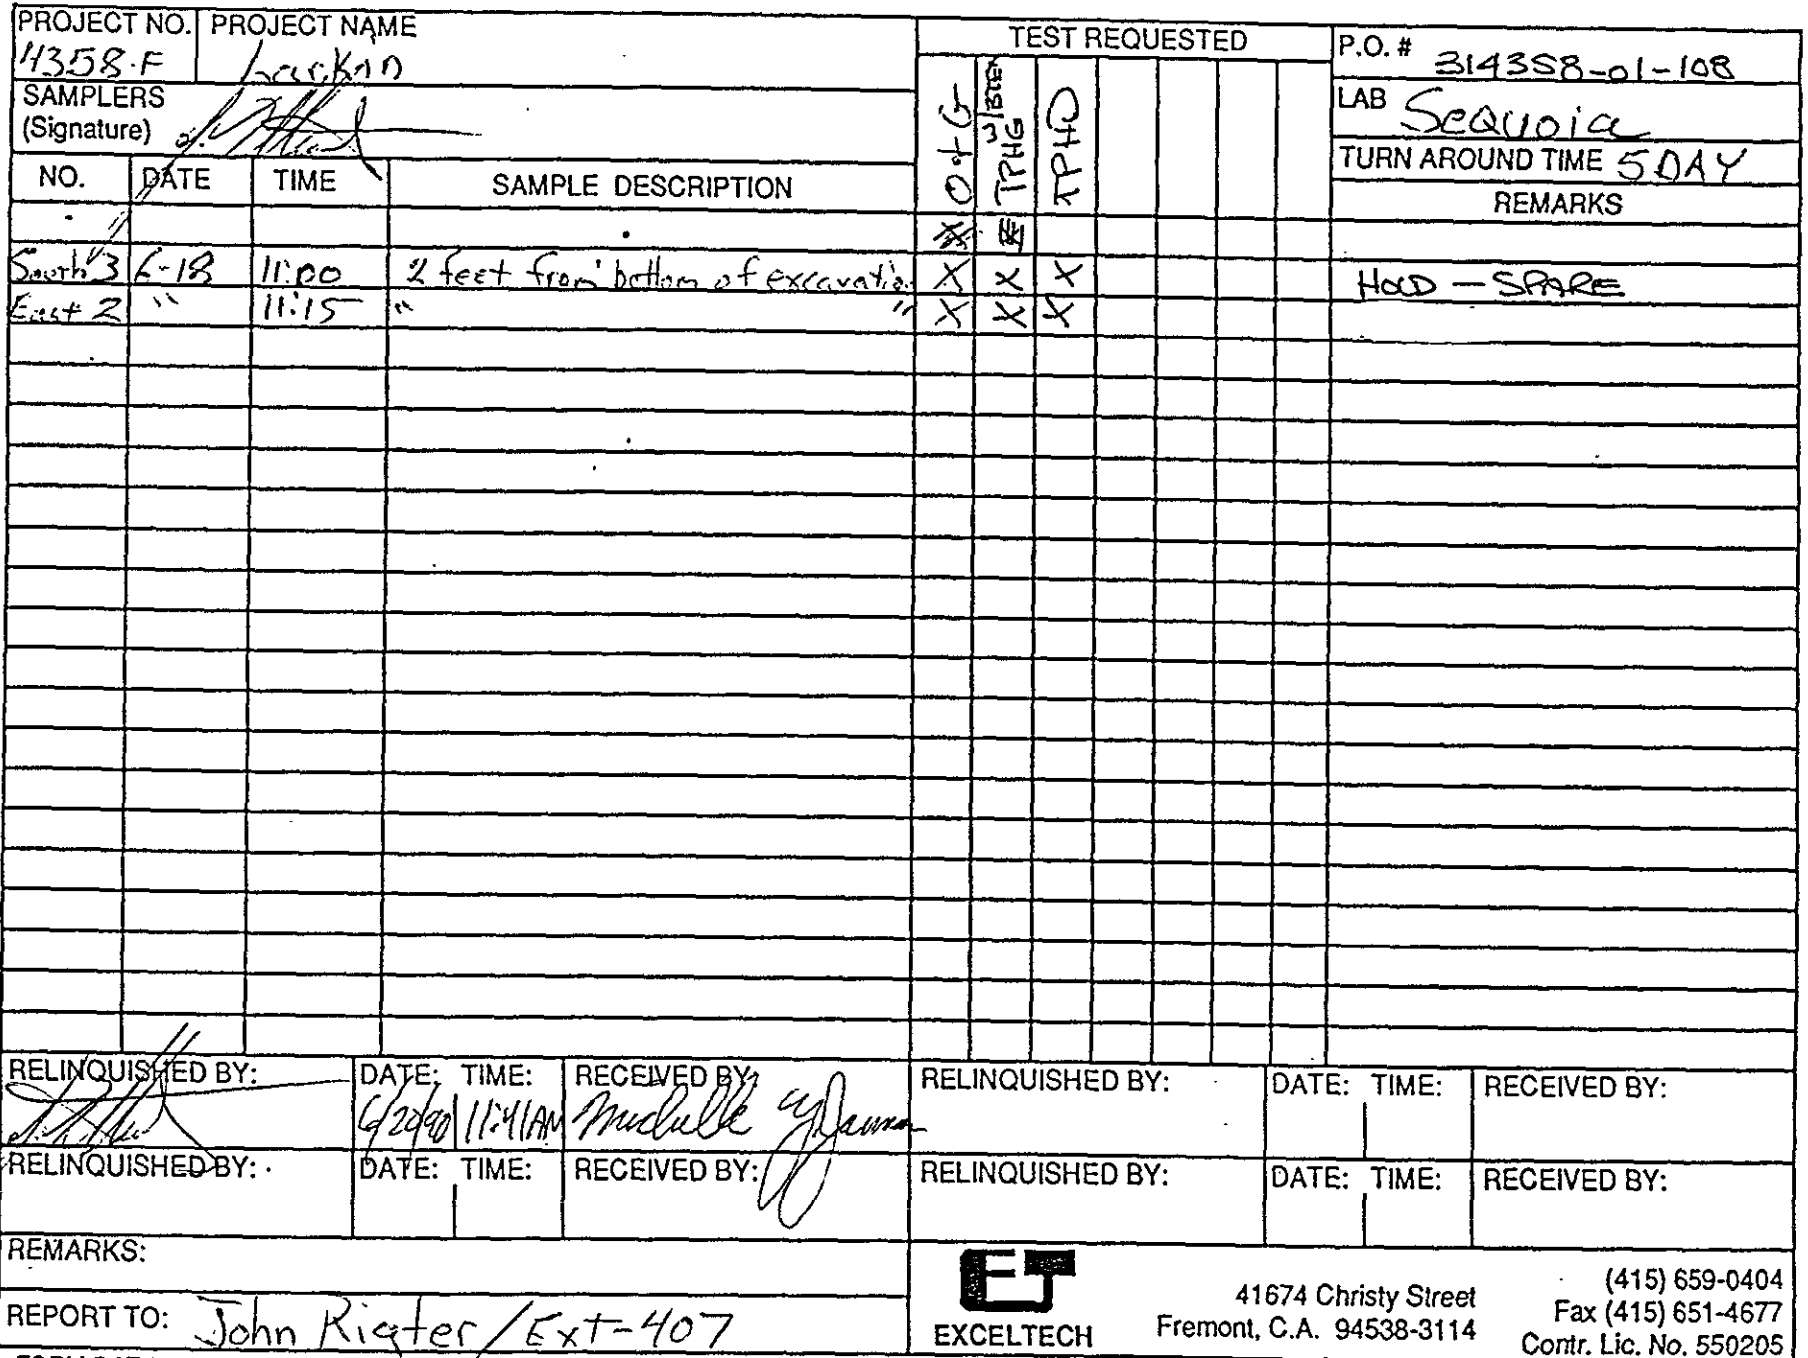 PROJECT NO. PROJECT NAME
4358-F
SAMPLERS
(Signature)
TEST REQUESTED
O+G
TPHG w/BTEX
TPHD
P.O. # 314358-01-108
LAB Sequoia
TURN AROUND TIME 5 DAY
REMARKS
NO. DATE TIME SAMPLE DESCRIPTION
South 3 6-18 11:00 2 feet from bottom of excavation X X X HOLD — SPARE
East 2 " 11:15 " " X X X
RELINQUISHED BY: DATE: TIME: RECEIVED BY: RELINQUISHED BY: DATE: TIME: RECEIVED BY:
6/20/90 11:41AM Michelle
RELINQUISHED BY: DATE: TIME: RECEIVED BY: RELINQUISHED BY: DATE: TIME: RECEIVED BY:
REMARKS:
REPORT TO: John Rigter / Ext-407
ET
EXCELTECH
41674 Christy Street
Fremont, C.A. 94538-3114
(415) 659-0404
Fax (415) 651-4677
Contr. Lic. No. 550205